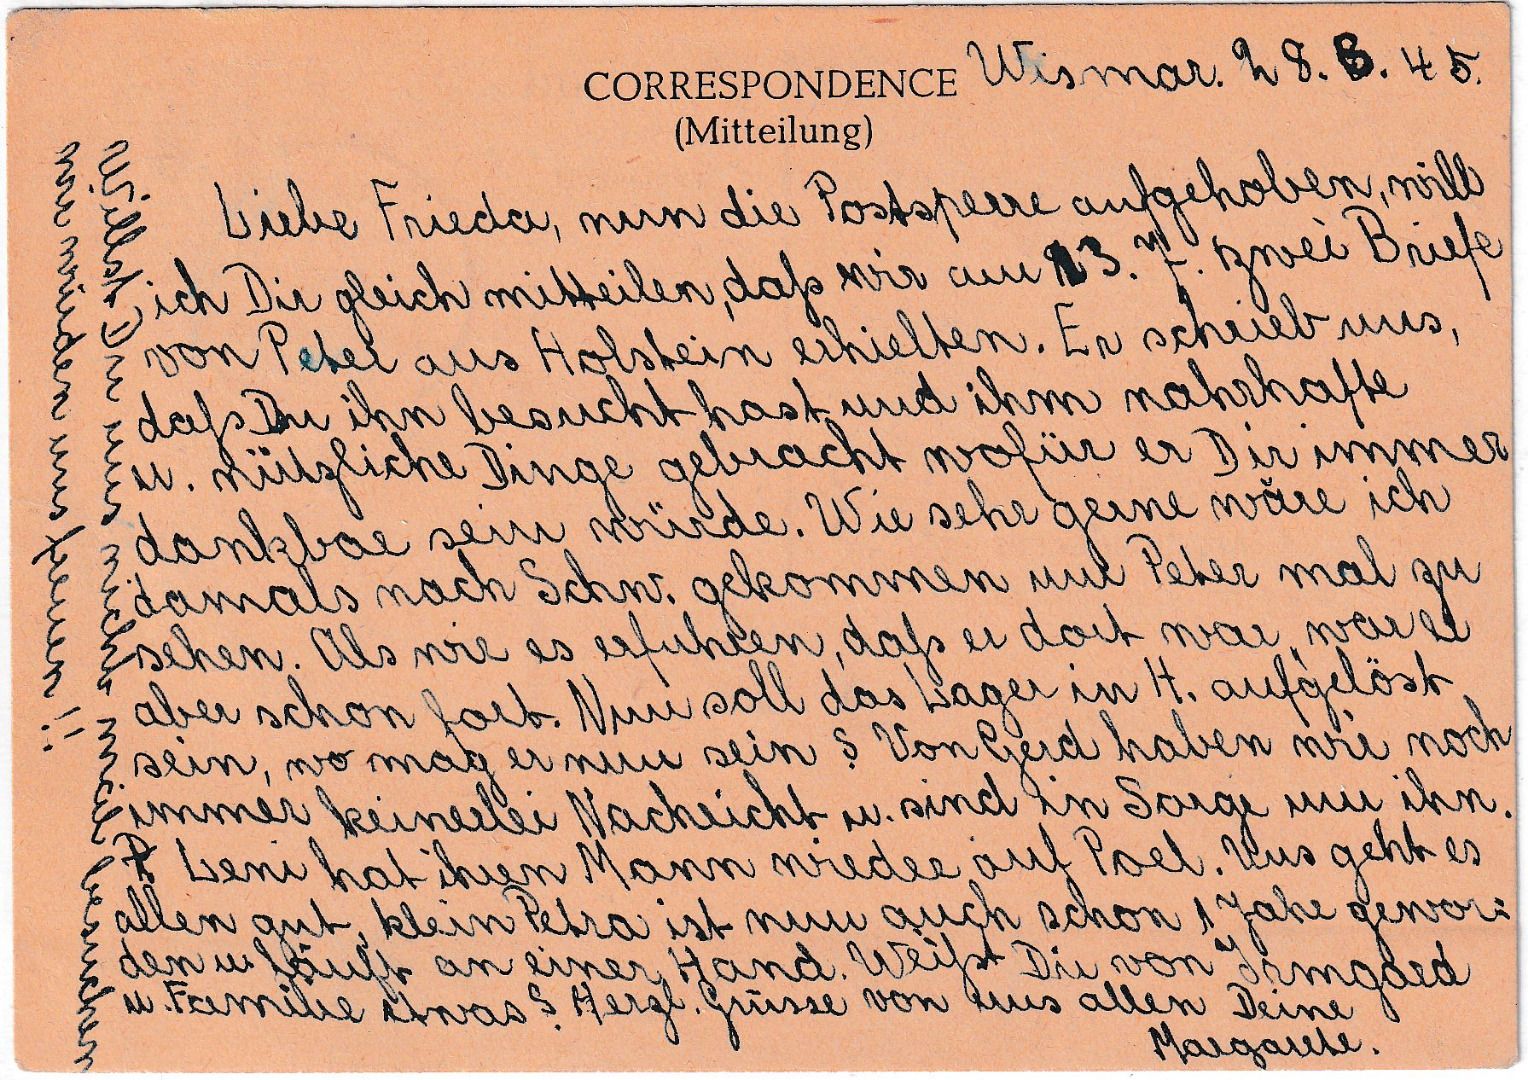 CORRESPONDENCE
(Mitteilung)
Wismar. 28.8.45.
Liebe Frieda, nun die Postsperre aufgehoben, will
ich Dir gleich mitteilen, daß wir am 13. 7. zwei Briefe
von Peter aus Holstein erhielten. Er schrieb uns,
daß Du ihn besucht hast und ihm nahrhafte
u. nützliche Dinge gebracht wofür er Dir immer
dankbar sein würde. Wie sehr gerne wäre ich
damals nach Schw. gekommen um Peter mal zu
sehen. Als wir es erfuhren, daß er dort war, war er
aber schon fort. Nun soll das Lager in H. aufgelöst
sein, wo mag er nun sein? Von Gerd haben wir noch
immer keinerlei Nachricht u. sind in Sorge um ihn.
Leni hat ihren Mann wieder auf Poel. Uns geht es
allen gut, klein Petra ist nun auch schon 1 Jahr gewor:
den u. läuft an einer Hand. Weißt Du von Irmgard
u. Familie etwas? Herzl. Grüsse von uns allen Deine
Margarete.
Willst Du uns nicht mal besuchen
wir würden uns freuen!!